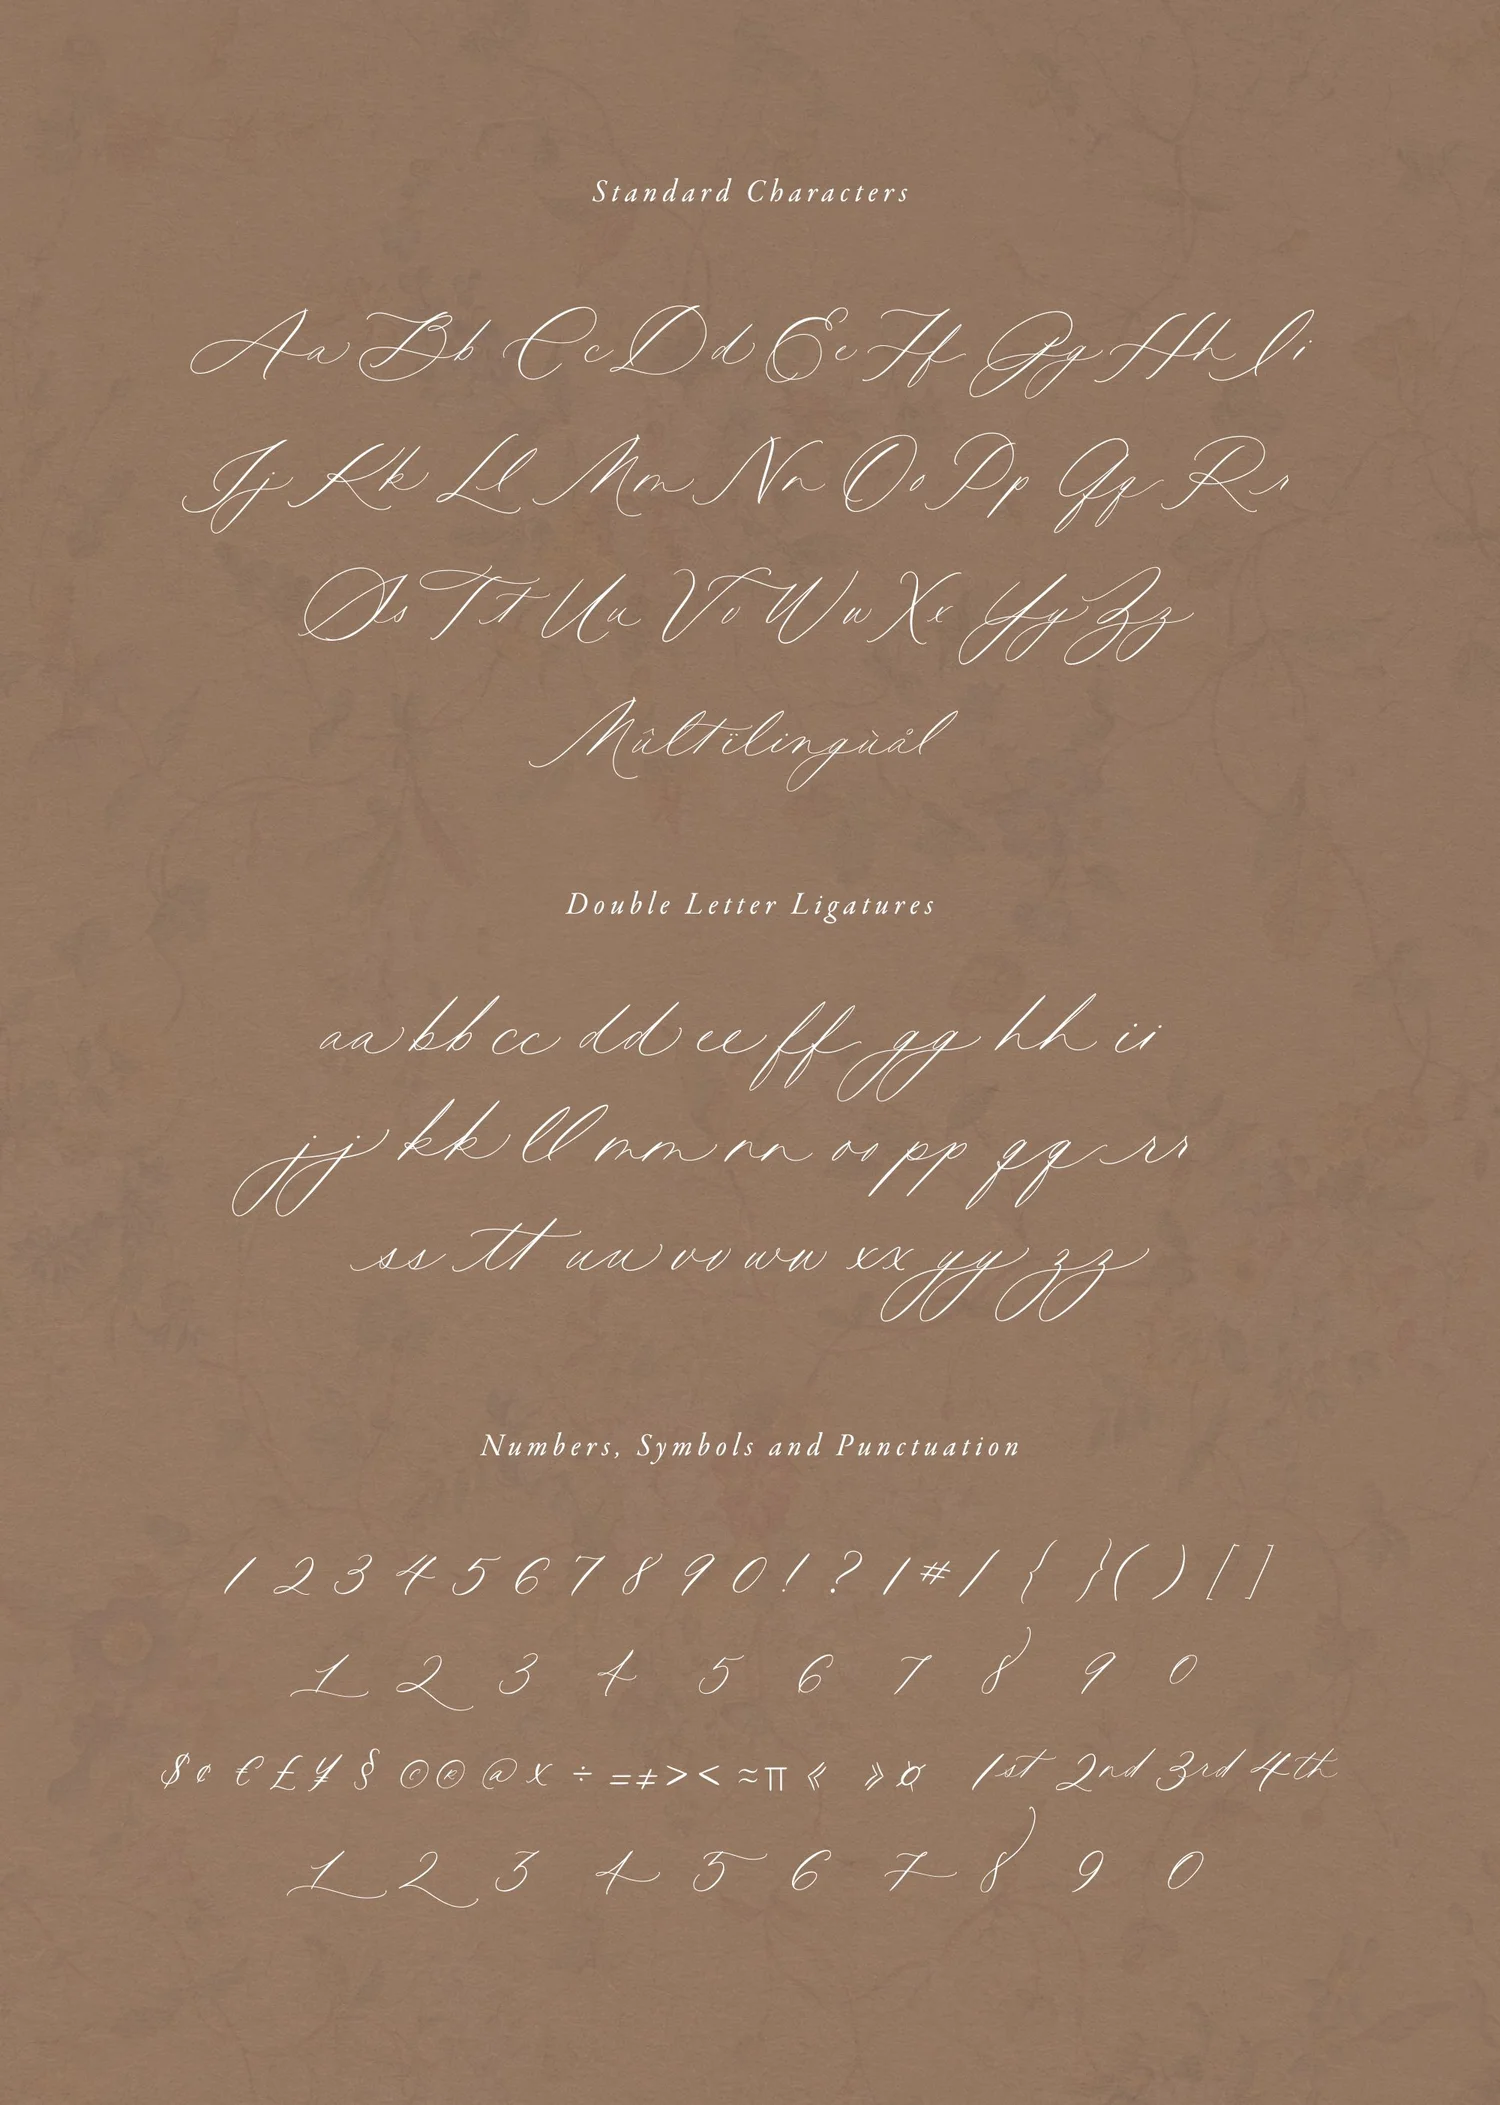 Standard Characters
Aa Bb Cc Dd Ee Ff Gg Hh Ii
Jj Kk Ll Mm Nn Oo Pp Qq Rr
Ss Tt Uu Vv Ww Xx Yy Zz
Mûltïlingùål
Double Letter Ligatures
aa bb cc dd ee ff gg hh ii
jj kk ll mm nn oo pp qq rr
ss tt uu vv ww xx yy zz
Numbers, Symbols and Punctuation
1 2 3 4 5 6 7 8 9 0 ! ? | # / { } ( ) [ ]
1 2 3 4 5 6 7 8 9 0
$ ¢ € £ ¥ § © ® @ x ÷ = ≠ > < ≈ π « » ¤ 1st 2nd 3rd 4th
1 2 3 4 5 6 7 8 9 0